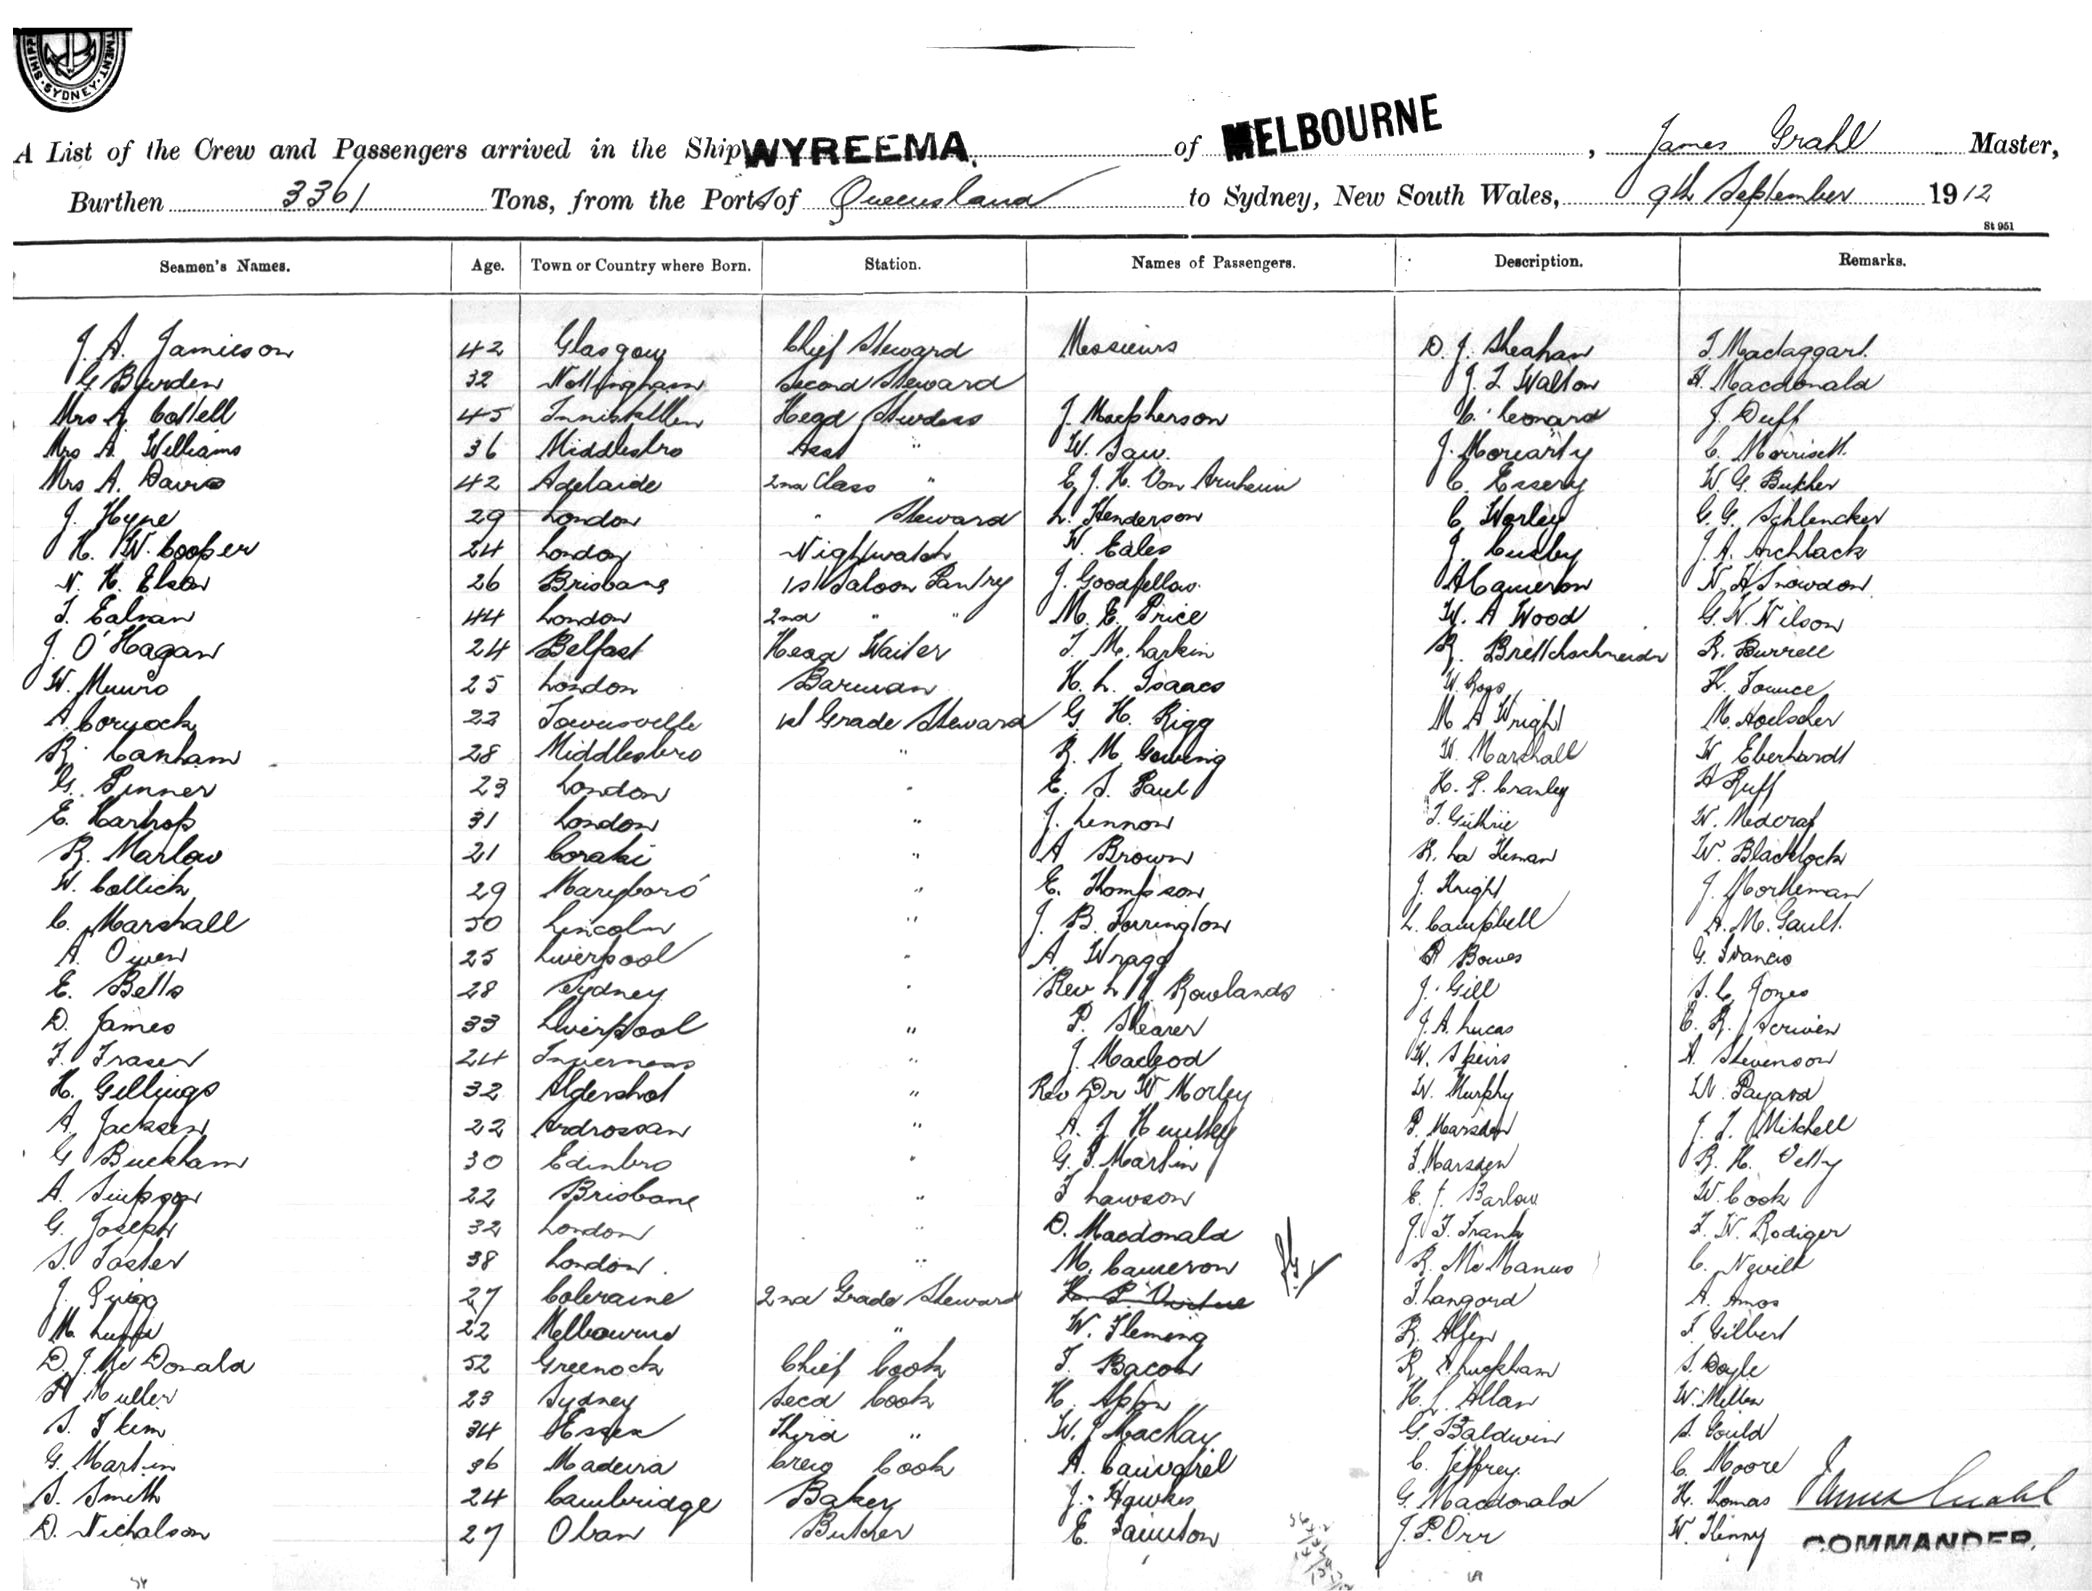 SHIPP TMENT. SYDNEY.
A List of the Crew and Passengers arrived in the Ship WYREEMA. of MELBOURNE, James Grahl Master,
Burthen 3361 Tons, from the Ports of Queensland to Sydney, New South Wales, 9th September 1912
St 951
Seamen's Names. Age. Town or Country where Born. Station. Names of Passengers. Description. Remarks.
J. A. Jamieson 42 Glasgow Chief Steward Messieurs D. J. Sheahan T. Mactaggart.
G Burden 32 Nottingham Second Steward J. T. Walton H. Macdonald
Mrs A. Cottell 45 Inniskillen Head Stwrdess J. Macpherson C. Leonard J. Duff
Mrs A. Williams 36 Middlesbro Asst " W. Saw. J. Moriarty C. Morrisett.
Mrs A. Davis 42 Adelaide 2nd Class " E. J. H. Von Arnheim C. Essery W. G. Butcher
J. Hyne 29 London " Steward L. Henderson C Worley G. G. Schlencker
H. W. Cooper 24 London Nightwatch W. Eales J. Cusby J. A. Archback
N. H. Elson 26 Brisbane 1st Saloon Pantry J. Goodfellow. A Cameron N. H Snowdon.
T. 44 London 2nd " " M. E. Price W. A Wood G. N. Nilson
J. O'Hagan 24 Belfast Head Waiter T. M. Larkin R. Brettschneider R. Burrell
W. Munro 25 London Barman H. L. Isaacs W. Ross H. Tounce
A. Cornock 22 Townsville 1st Grade Steward G. H. Rigg M A Wright M. Hoelscher
R. Canham 28 Middlesbro " R. M. Gowing W. Marshall W Eberhardt
G. Pinner 23 London " E. S. Paul H. P. Cranley A Ruff
E. Hartrop 31 London " J. Lennon T. Guthrie W. Medcraf
R. Marlow 21 Coraki " A Brown R. La W. Blacklock
W. Collick 29 Maryboro' " E. Thompson J. Knight J. Morkeman
C. Marshall 50 Lincoln " J. B. Torrington L. Campbell A. M. Gault.
A. Owen 25 Liverpool " A. Wragg P Bowes G. Francis
E. Betts 28 Sydney " Rev L. J. Rowlands J. Gill S. C. Jones
D. James 33 Liverpool " P. Shearer J. A. Lucas C. R. Scriven
F. Fraser 24 Inverness " J. Macleod W. Speirs A. Stevenson
H. Gillings 32 Aldershot " Rev Dr W Morley W. Murphy W. Payard
A. Jackson 22 Ardrossan " A. J. P. Marsden J. T. Mitchell
G Buckham 30 Edinbro " G. P. Martin T. Marsden R. H. Velly
A. Simpson 22 Brisbane " T Lawson E. J. Barlow W. Cook
G. Joseph 32 London " D. Macdonald J. F. Frank F. W. Rodiger
S. Foster 38 London. " M. Cameron R. McManus C. Nevill
J. Quigg 27 Coleraine 2nd Grade Steward H. P. Virtue T. Langord A. Amos
M Lund 22 Melbourne " W. Fleming R. Allen T. Gilbert
D. J. McDonald 52 Greenock Chief Cook T. Bacon R. A. Luckham S. Doyle
A Muller 23 Sydney Secd Cook H. Apton H. L. Allan W. Mellen
S. 34 Essex Third " W. J MacKay G. Baldwin S. Gould
G. Martin 36 Madeira Crew Cook A. C. Jeffrey. C. Moore
S. Smith 24 Cambridge Baker J. Hawkes G. Macdonald H. Thomas James Grahl
D. Nicholson 27 Oban Butcher E. Taunton J. P. Orr W. Kenny COMMANDER.